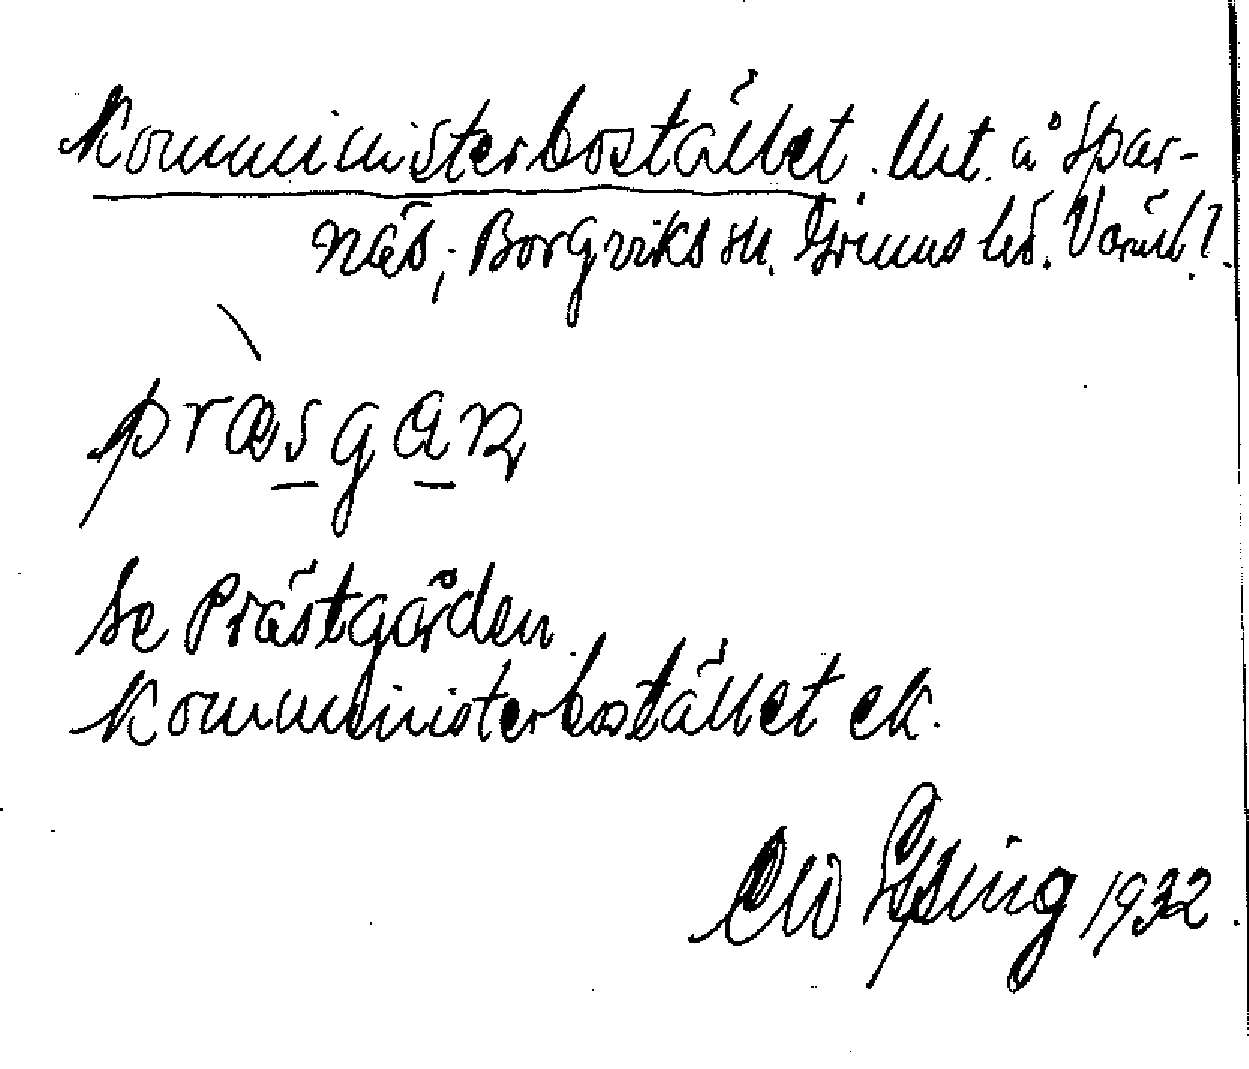 Komministerbostället. Unt. å Spar-
näs, Borgviks sn. Grums hd. Värml.
præsgaɳ
Se Prästgården
Komministerbostället ek.
1932.